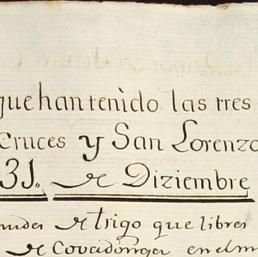 que han tenido las tres
Cruces y San Lorenzo
31„ de Diziembre
de trigo que libres
de Covadonga en el m